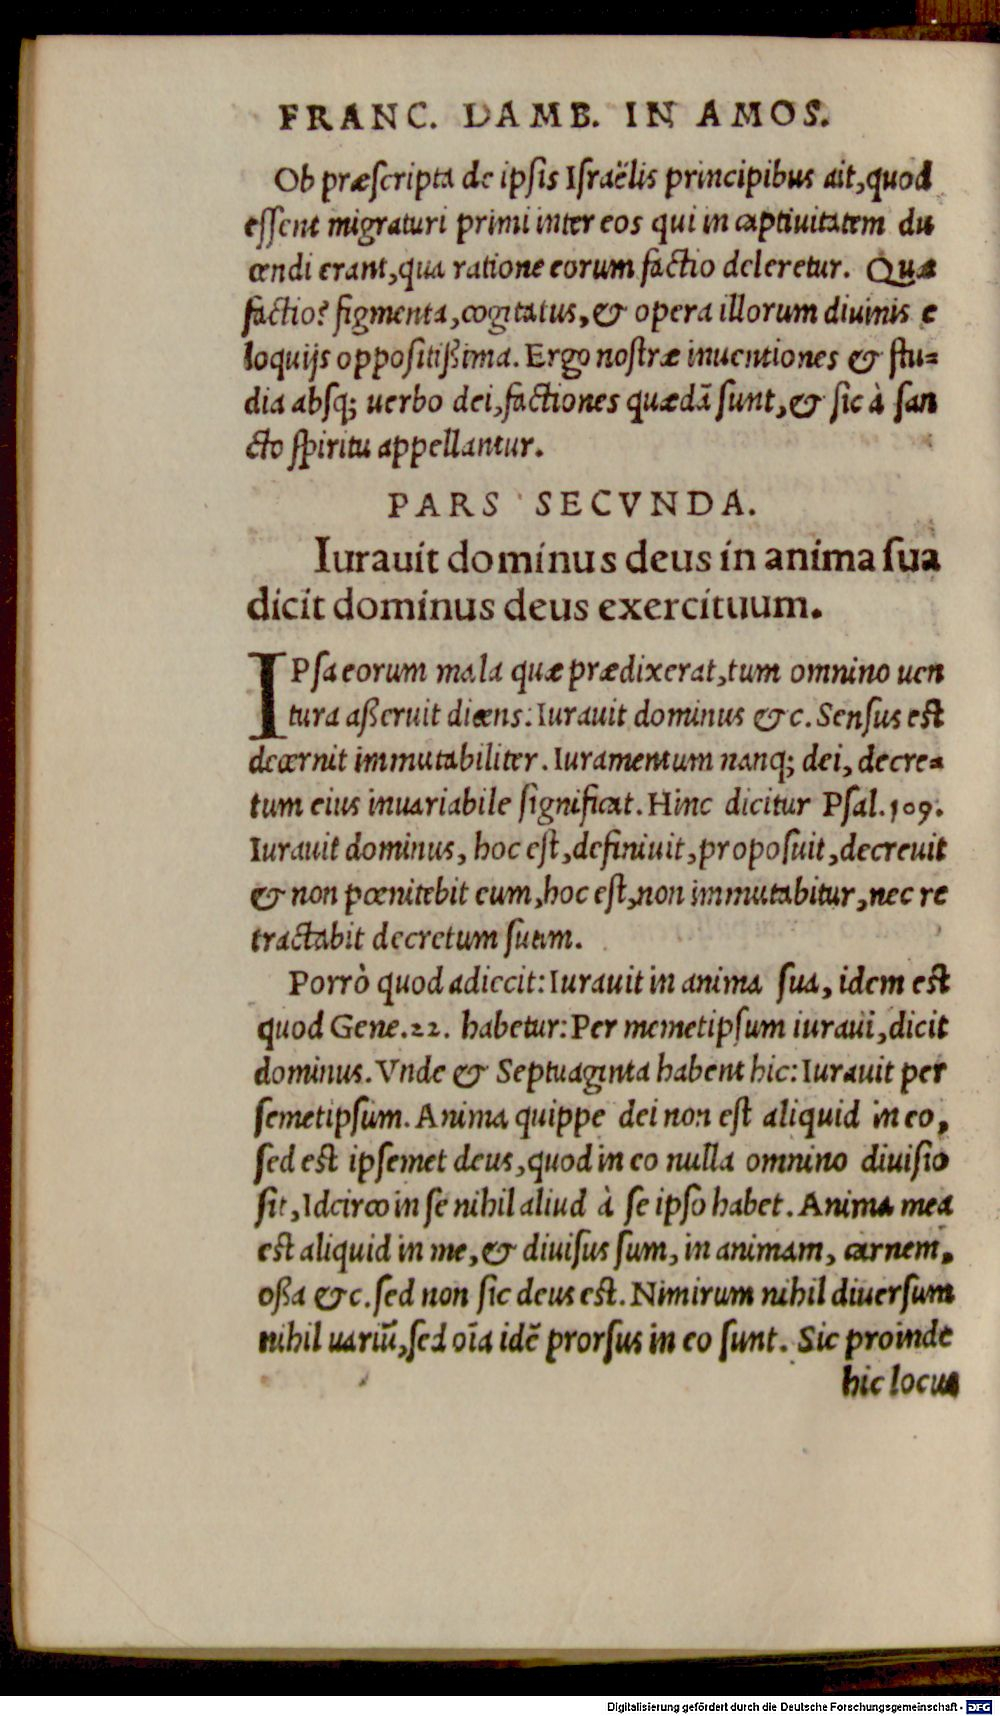 FRANC. LAMB. IN AMOS.
Ob præſcripta de ipſis Iſraëlis principibus ait,quod
eſſent migraturi primi inter eos qui in captiuitatem du
cendi erant,qua ratione eorum factio deleretur. Quæ
factio? figmenta,cogitatus,& opera illorum diuinis e
loquijs oppoſitißima. Ergo noſtræ inuentiones & ſtu=
dia abſq; uerbo dei,factiones quædã ſunt,& ſic à ſan
cto ſpiritu appellantur.
PARS SECVNDA.
Iurauit dominus deus in anima ſua
dicit dominus deus exercituum.
IPſa eorum mala quæ prædixerat,tum omnino uen
tura aßeruit dicens: Iurauit dominus &c. Senſus eſt
decernit immutabiliter. Iuramentum nanq; dei, decre=
tum eius inuariabile ſignificat. Hinc dicitur Pſal.109.
Iurauit dominus, hoc eſt,definiuit,propoſuit,decreuit
& non pœnitebit eum,hoc eſt,non immutabitur,nec re
tractabit decretum ſuum.
Porrò quod adiecit: Iurauit in anima ſua, idem eſt
quod Gene.22. habetur: Per memetipſum iuraui,dicit
dominus. Vnde & Septuaginta habent hic: Iurauit per
ſemetipſum. Anima quippe dei non eſt aliquid in eo,
ſed eſt ipſemet deus,quod in eo nulla omnino diuiſio
ſit, Idcirco in ſe nihil aliud à ſe ipſo habet. Anima mea
eſt aliquid in me,& diuiſus ſum, in animam, carnem,
oßa &c. ſed non ſic deus eſt. Nimirum nihil diuerſum
nihil uariũ,ſed oĩa idẽ prorſus in eo ſunt. Sic proinde
hic locus
Digitalisierung gefördert durch die Deutsche Forschungsgemeinschaft - DFG